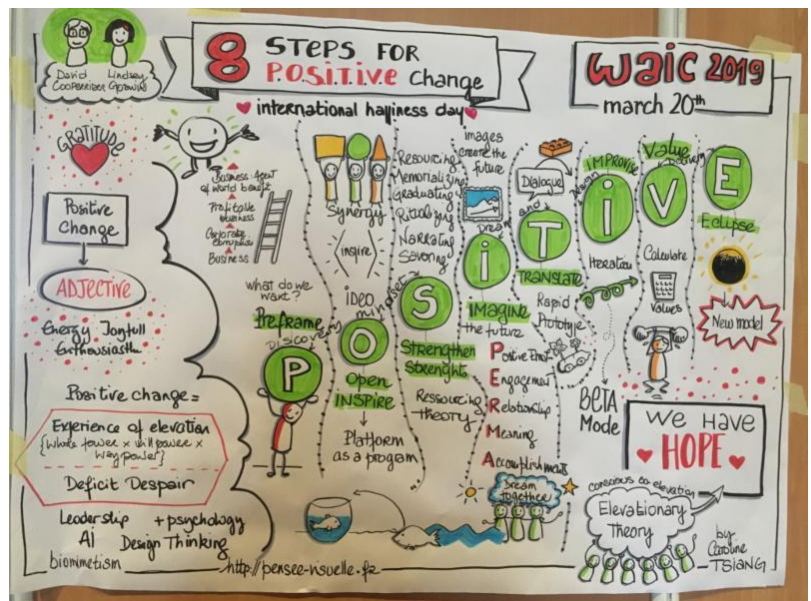 David
Cooperrider
Lindsey
Godwin
8 STEPS FOR
P.O.S.I.T.I.V.E Change
waic 2019
march 20th
international hapiness day
GRATITUDE
Positive
Change
ADJECTIVE
Energy Joyfull
Positive change =
Experience of elevation
{whole power x will power x
way power}
Deficit Despair
Leadership + psychology
AI Design Thinking
biomimetism
Business Agent
of world benefit
Profitable
business
Corporate
Business
what do we
want?
Preframe
DISCOVERY
P
Synergy
inspire
IDEO
mindset
O
Open
INSPIRE
Platform
as a program
Resourcing
Memorializing
Graduating
Ritualizing
Narrating
Savoring
S
Strengthen
Strenght
Ressourcing
theory
images
create the
future
Dream
and
i
IMAGINE
the future
PERMA
Positive Emot
Engagement
Relationship
Meaning
Accomplishments
Dream
together
Dialogue
T
TRANSLATE
Rapid
Prototype
iMPROVISE
i
Iteration
BETA
Mode
Value
V
Calculate
Values
E
Eclipse
New model
We Have
HOPE
conscious co elevation
Elevationary
Theory
by
Caroline
TSIANG
http://pensee-visuelle.fr